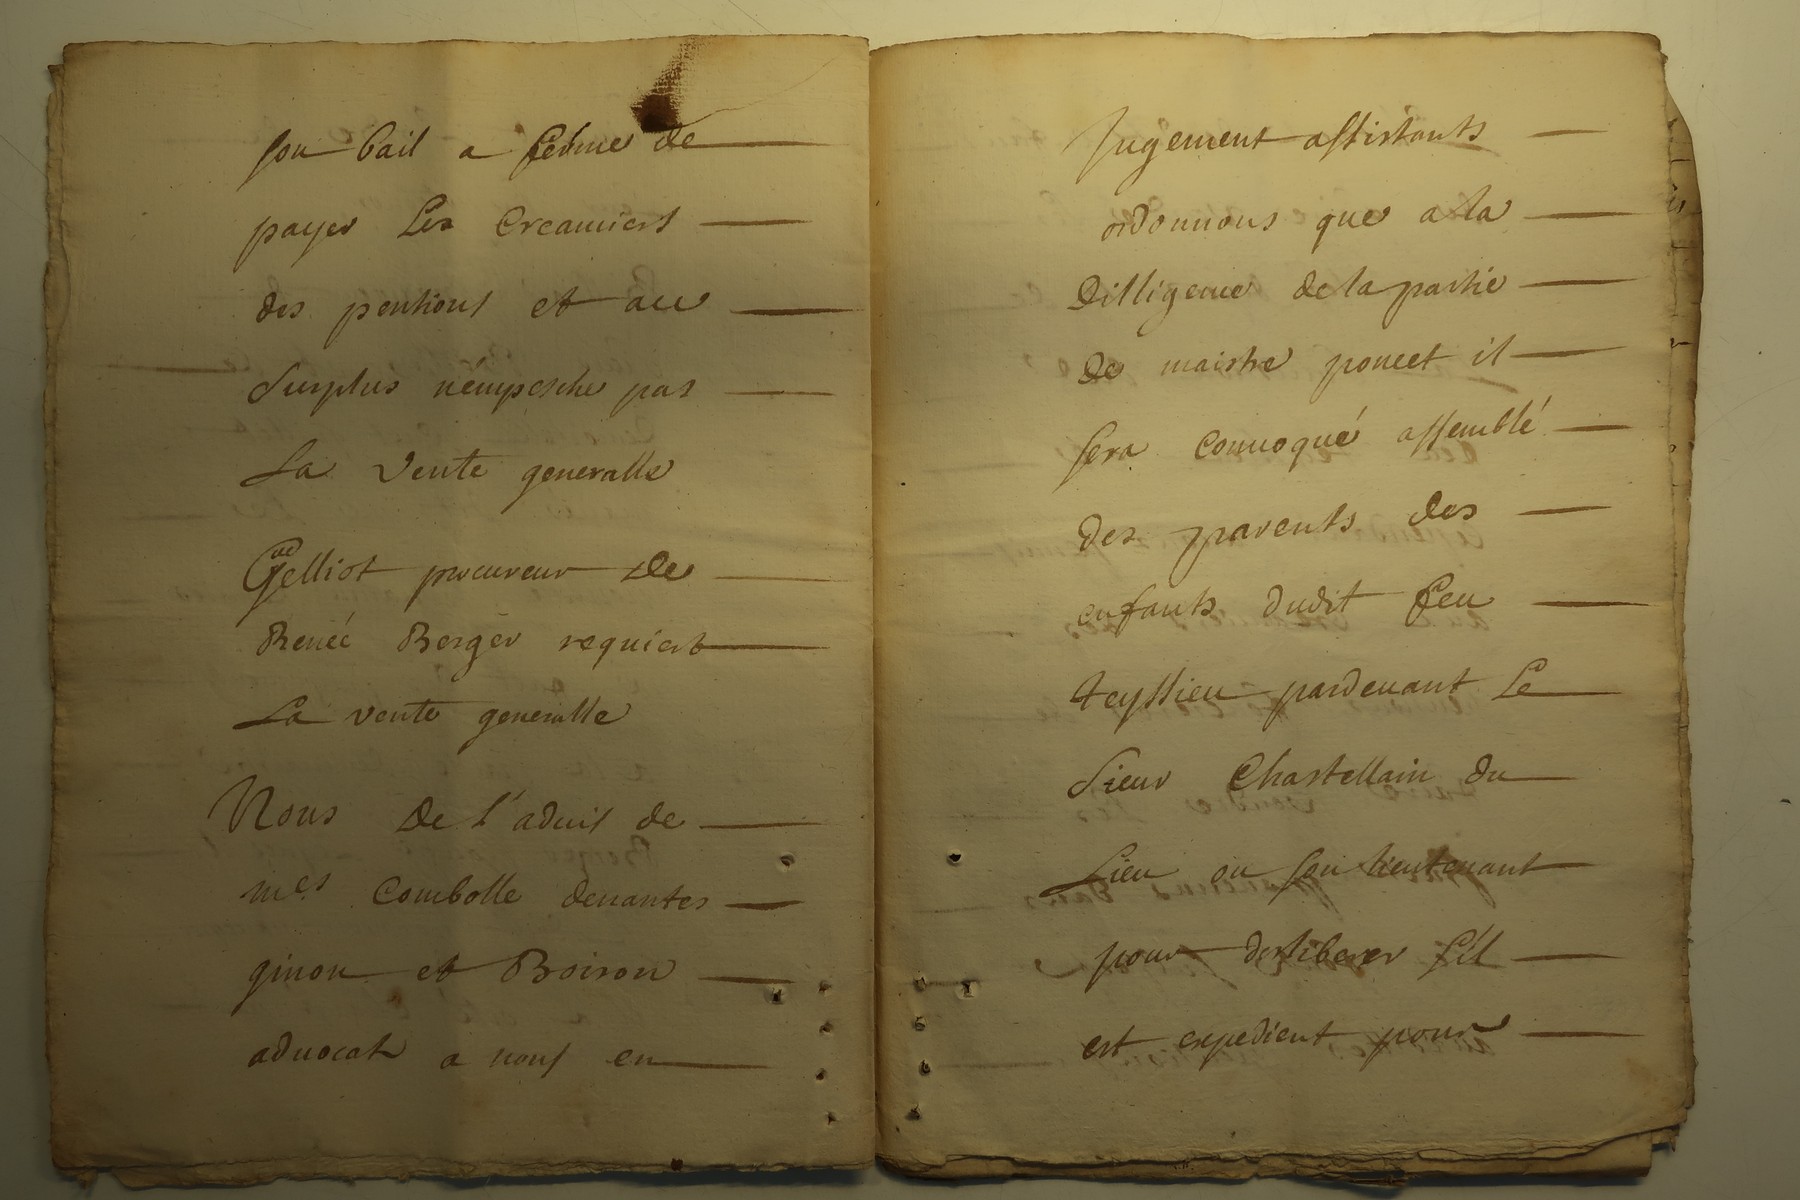 son bail a ferme de
payer Les Creanciers
des pentions et au
Surplus nempesche pas
La Vente generalle
Gelliot procureur de
Renée Berger requiert
La vente generalle
Nous De l'aduis de
mes Combolle deuantes
ginon et Boiron
aduocat a nous en
Jugement assistants
ordonnons que a la
Dilligence de la partie
De maistre poncet il
sera conuoqué assemblé
des parents des
enfants dudit feu
teyssieu pardeuant Le
Sieur Chastellain du
Lieu ou son lieutenant
pour desliberer s'il
est expedient pour